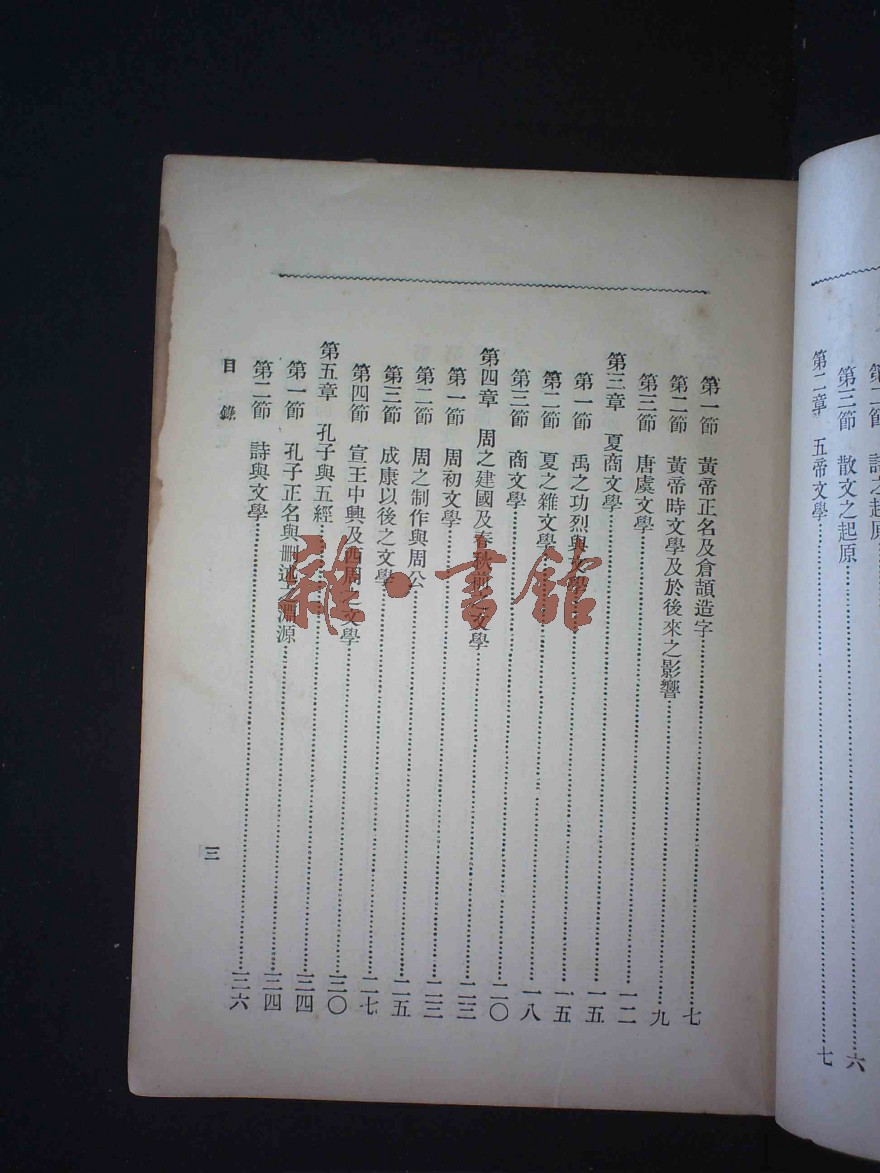 第三節　散文之起原……六
第二章　五帝文學……七
第一節　黃帝正名及倉頡造字……七
第二節　黃帝時文學及於後來之影響……九
第三節　唐虞文學……一二
第三章　夏商文學……一五
第一節　禹之功烈與文學……一五
第二節　夏之雜文學……一八
第三節　商文學……二〇
第四章　周之建國及春秋前之文學……二三
第一節　周初文學……二三
第二節　周之制作與周公……二五
第三節　成康以後之文學……二七
第四節　宣王中興及西周之文學……三〇
第五章　孔子與五經……三四
第一節　孔子正名與刪述之淵源……三四
第二節　詩與文學……三六
目錄
三
雜·書館